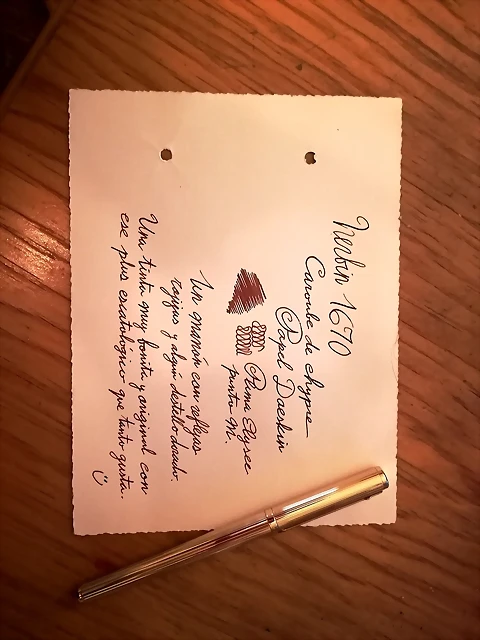 Herbin 1670
Caroube de chypre
Papel Daeskin
Pluma Elysee
punta M.
Un marrón con reflejos
rojizos y algún destello dorado.
Una tinta muy bonita y original con
ese plus escatológico que tanto gusta.